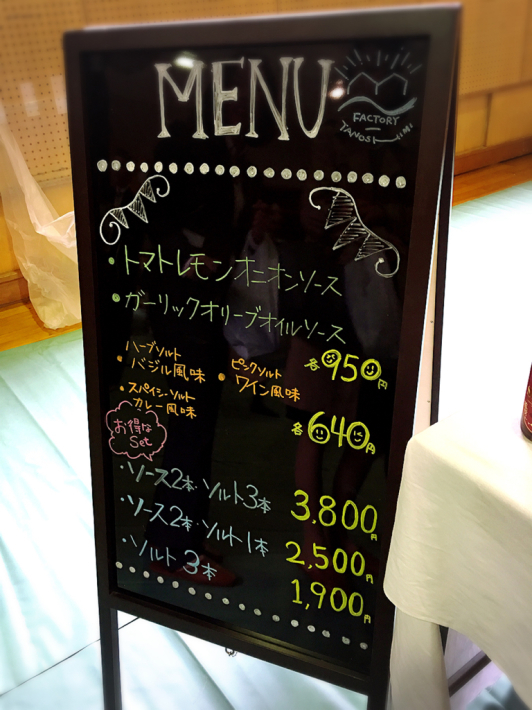 MENU
FACTORY
TANOSHIMI
・トマトレモンオニオンソース
・ガーリックオリーブオイルソース
各950円
ハーブソルト
・バジル風味
ピンクソルト
・ワイン風味
・スパイシーソルト
カレー風味
各640円
お得な
Set
・ソース2本・ソルト3本 3,800円
・ソース2本・ソルト1本 2,500円
・ソルト3本 1,900円